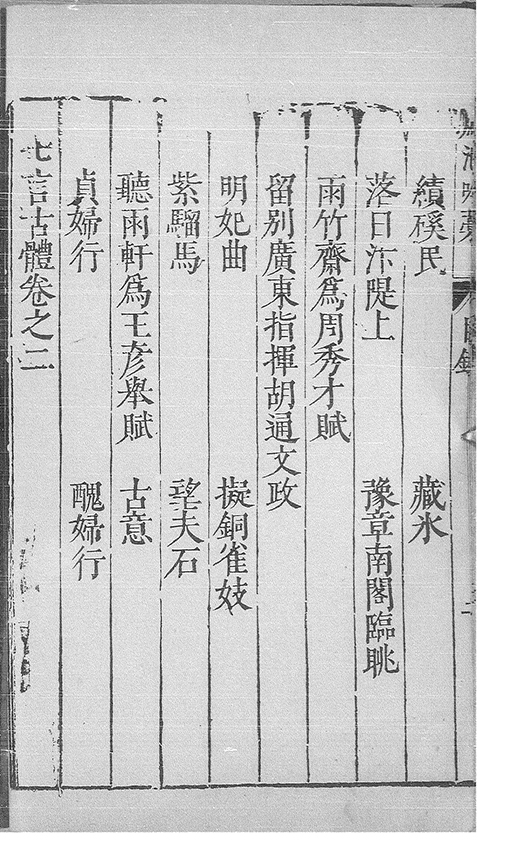 績磎民　藏氷
落日汴隄上　豫章南閣臨眺
雨竹齋爲周秀才賦
留别廣東指揮胡通文政
明妃曲　擬銅雀妓
紫騮馬　望夫石
聽雨軒爲王彦舉賦　古意
貞婦行　醜婦行
七言古體卷之二